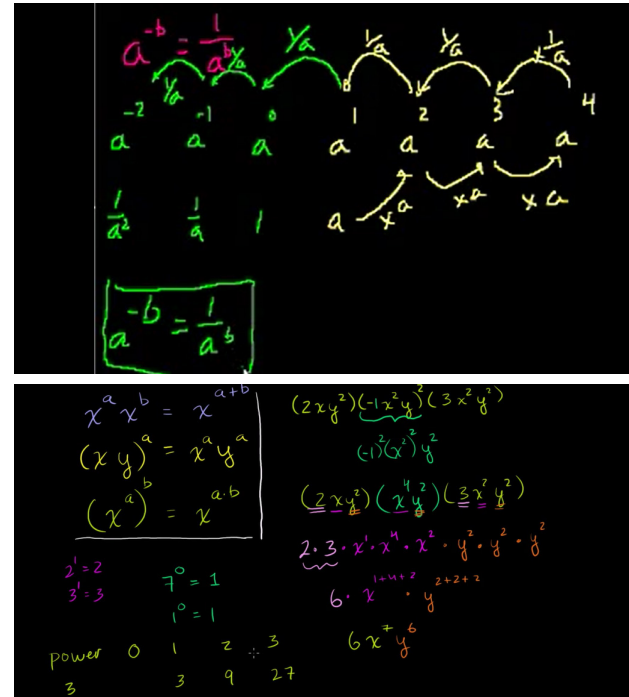 a^-b = 1/a^b
1/a 1/a 1/a 1/a 1/a x 1/a
a^-2 a^-1 a^0 a^1 a^2 a^3 a^4
1/a² 1/a 1 a xa xa xa
a^-b = 1/a^b
x^a x^b = x^(a+b)
(xy)^a = x^a y^a
(x^a)^b = x^(a·b)
2¹=2
3¹=3
7⁰ = 1
1⁰ = 1
power 0 1 2 3
3 3 9 27
(2xy²)(-1x²y)²(3x²y²)
(-1)²(x²)²y²
(2xy²)(x⁴y²)(3x²y²)
2·3·x¹·x⁴·x²·y²·y²·y²
6·x^(1+4+2)·y^(2+2+2)
6x⁷y⁶